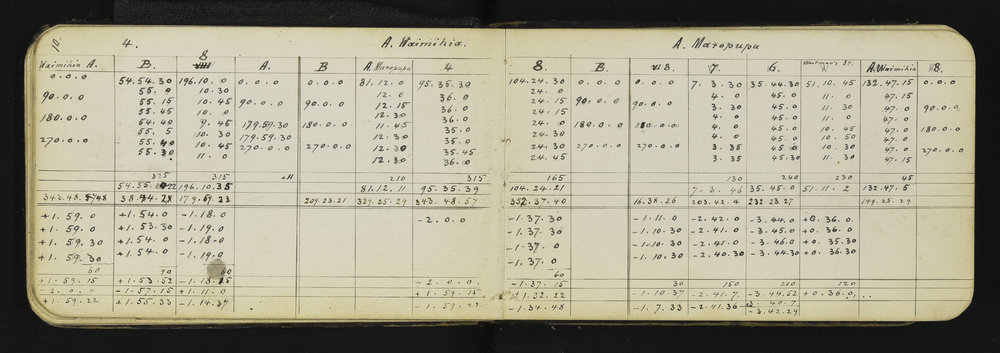 10. 4. A. Waimihia.
8
Waimihia A. B. VIII A. B A. Maropupu 4
0.0.0 54.54.30 196.10.0 0.0.0 0.0.0 81.12.0 95.35.30
55.0 10.30 12.0 36.0
90.0.0 55.15 10.45 90.0.0 90.0.0 12.15 36.0
55.45 10.0 12.30 36.0
180.0.0 54.40 9.45 179.59.30 180.0.0 11.45 35.0
55.5 10.30 179.59.30 12.30 35.30
270.0.0 55.40 10.45 270.0.0 270.0.0 12.30 35.45
55.30 11.0 12.30 36.0
325 315 +11 210 315
54.55. 196.10.35 81.12.11 95.35.39
343.48. 209.23.21 329.25.29 343.48.57
+1.59.0 +1.54.0 -1.18.0 -2.0.0
+1.59.0 +1.53.30 -1.19.0
+1.59.30 +1.54.0 -1.18.0
+1.59.30 +1.54.0 -1.19.0
60 90 60
+1.59.15 +1.53.52 -1.18. -2.0.0
-2.0.0 -1.57.15 +1.11.0 +1.59.15
+1.59.22 +1.55.33 -1.14.37 -1.59.22
A. Maropupu
8. B. VIII 7. 6. W A. Waimihia 8.
104.24.30 0.0.0 0.0.0 7.3.30 35.44.30 51.10.45 132.47.15 0.0.0
24.0 4.0 45.0 11.30 47.15
24.15 90.0.0 90.0.0 4.0 45.0 11.30 47.0 90.0.0
24.0 4.0 45.0 11.0 47.0
24.30 180.0.0 180.0.0 4.0 45.0 10.45 47.0 180.0.0
24.30 4.0 45.0 10.50 47.0
24.30 270.0.0 270.0.0 3.30 45.0 11.30 47.0 270.0.0
24.45 3.35 45.30 11.30 47.15
165 130 240 230 45
104.24.21 7.3.46 35.45.0 51.11.2 132.47.5
352.37.40 16.38.26 203.42.4 232.23.27 149.25.29
-1.37.0 -1.11.0 -2.42.0 -3.44.0 +0.36.0
-1.37.30 -1.10.30 -2.41.0 -3.45.0 +0.36.0
-1.37.0 -1.10.30 -2.41.0 -3.46.0 +0.35.30
-1.37.0 -1.10.30 -2.40.30 -3.44.30 +0.36.30
60
-1.37.15 30 150 210 120
-1.32.22 -1.10.37 -2.41.7 -3.44.52 +0.36.0
-1.34.48 -1.7.33 -2.41.36
-3.42.29